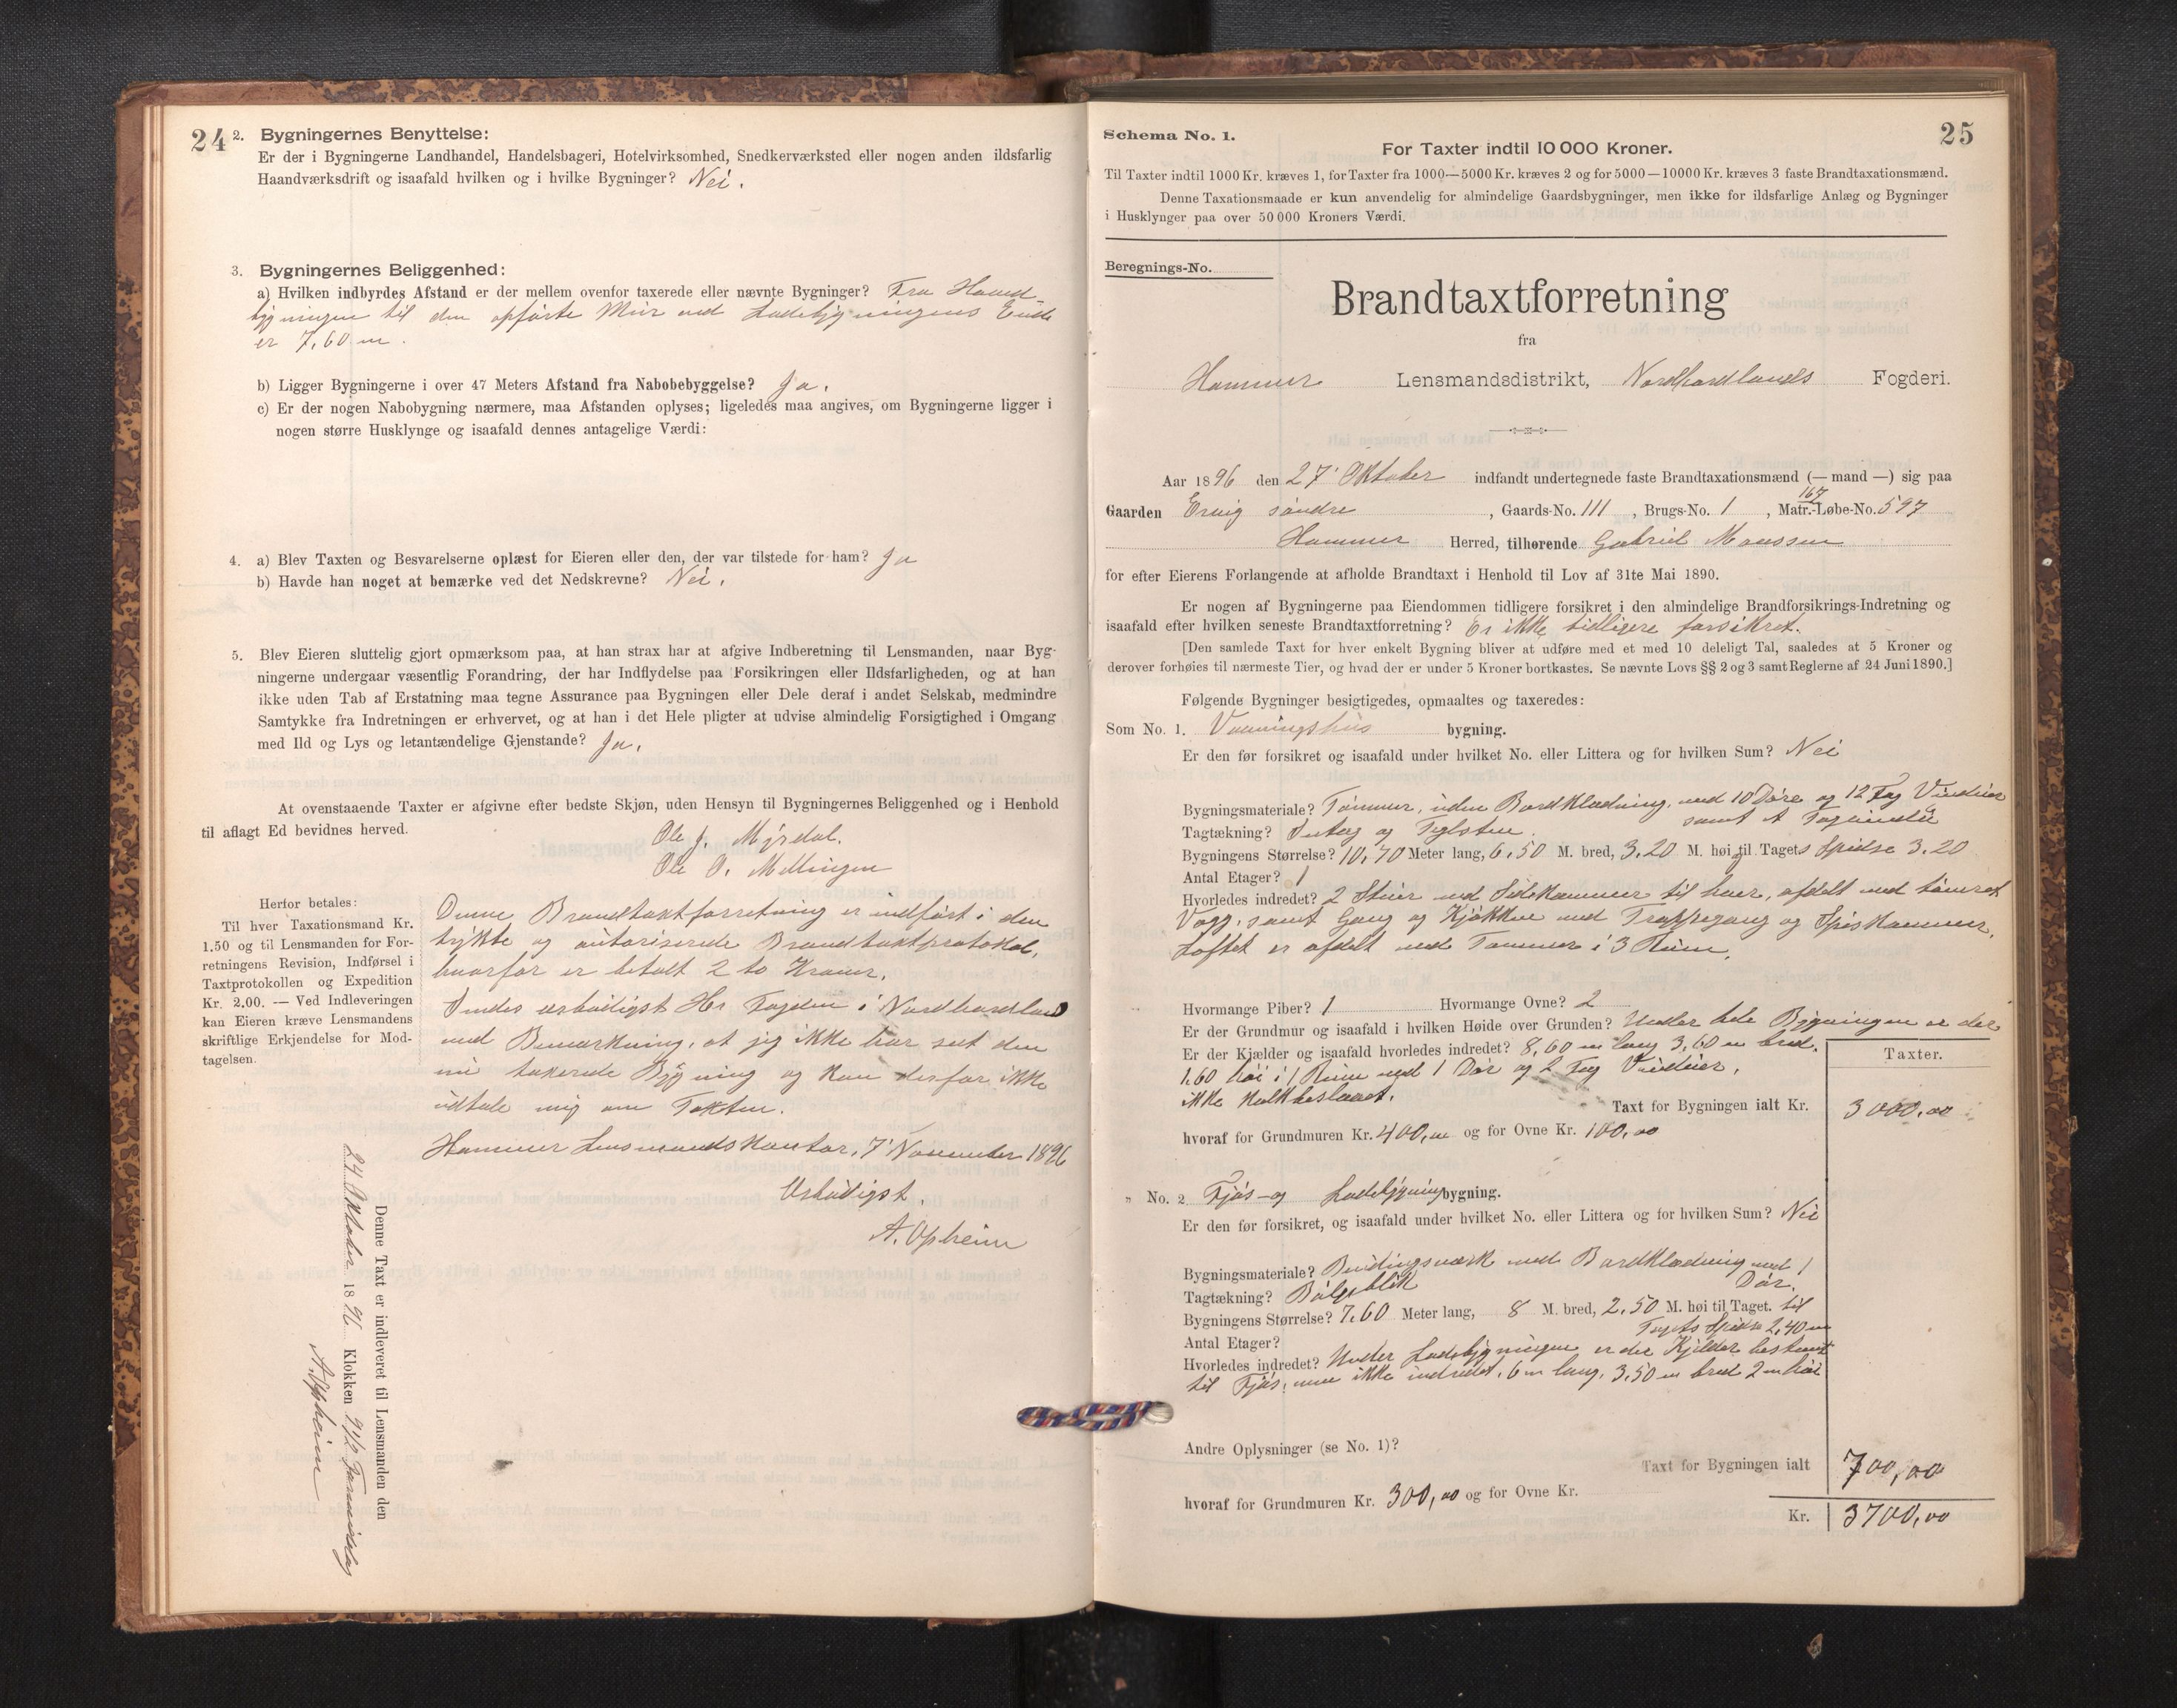 24
2. Bygningernes Benyttelse:
Er der i Bygningerne Landhandel, Handelsbageri, Hotelvirksomhed, Snedkerværksted eller nogen anden ildsfarlig
Haandværksdrift og isaafald hvilken og i hvilke Bygninger? Nei.
3. Bygningernes Beliggenhed:
a) Hvilken indbyrdes Afstand er der mellem ovenfor taxerede eller nævnte Bygninger? Fra Hoved-
bygningen til den opførte Mur ved Ladebygningens Ende
er 7,60 m.
b) Ligger Bygningerne i over 47 Meters Afstand fra Nabobebyggelse? Ja.
c) Er der nogen Nabobygning nærmere, maa Afstanden oplyses; ligeledes maa angives, om Bygningerne ligger i
nogen større Husklynge og isaafald dennes antagelige Værdi:
4. a) Blev Taxten og Besvarelserne oplæst for Eieren eller den, der var tilstede for ham? Ja
b) Havde han noget at bemærke ved det Nedskrevne? Nei.
5. Blev Eieren sluttelig gjort opmærksom paa, at han strax har at afgive Indberetning til Lensmanden, naar Byg-
ningerne undergaar væsentlig Forandring, der har Indflydelse paa Forsikringen eller Ildsfarligheden, og at han
ikke uden Tab af Erstatning maa tegne Assurance paa Bygningen eller Dele deraf i andet Selskab, medmindre
Samtykke fra Indretningen er erhvervet, og at han i det Hele pligter at udvise almindelig Forsigtighed i Omgang
med Ild og Lys og letantændelige Gjenstande? Ja.
At ovenstaaende Taxter er afgivne efter bedste Skjøn, uden Hensyn til Bygningernes Beliggenhed og i Henhold
til aflagt Ed bevidnes herved.
Ole J. Myrdal.
Ole O. Mellingen
Herfor betales:
Til hver Taxationsmand Kr.
1.50 og til Lensmanden for For-
retningens Revision, Indførsel i
Taxtprotokollen og Expedition
Kr. 2,00. — Ved Indleveringen
kan Eieren kræve Lensmandens
skriftlige Erkjendelse for Mod-
tagelsen.
Denne Brandtaxtforretning er indført i den
trykte og autoriserede Brandtaxtprotokol,
hvorfor er betalt 2 to Kroner.
Sendes ærbødigst Hr Fogden i Nordhordland
med Bemærkning, at jeg ikke har seet den
nu taxerede Bygning og kan derfor ikke
udtale mig om Taxten.
Hammer Lensmandskontor, 7' November 1896
Ærbødigst,
A. Opheim
Denne Taxt er indleveret til Lensmanden den
24 Oktober 1896 Klokken 9 1/2 Formiddag
A. Opheim
25
Schema No. 1.
For Taxter indtil 10 000 Kroner.
Til Taxter indtil 1000 Kr. kræves 1, for Taxter fra 1000—5000 Kr. kræves 2 og for 5000—10000 Kr. kræves 3 faste Brandtaxationsmænd.
Denne Taxationsmaade er kun anvendelig for almindelige Gaardsbygninger, men ikke for ildsfarlige Anlæg og Bygninger
i Husklynger paa over 50 000 Kroners Værdi.
Beregnings-No.
Brandtaxtforretning
fra
Hammer Lensmandsdistrikt, Nordhordlands Fogderi.
Aar 1896 den 27' Oktober indfandt undertegnede faste Brandtaxationsmænd (— mand —) sig paa
Gaarden søndre, Gaards-No. 111, Brugs-No. 1, Matr.-Løbe-No. 597
167
Hammer Herred, tilhørende Gabriel Monssen
for efter Eierens Forlangende at afholde Brandtaxt i Henhold til Lov af 31te Mai 1890.
Er nogen af Bygningerne paa Eiendommen tidligere forsikret i den almindelige Brandforsikrings-Indretning og
isaafald efter hvilken seneste Brandtaxtforretning? Er ikke tidligere forsikret.
[Den samlede Taxt for hver enkelt Bygning bliver at udføre med et med 10 deleligt Tal, saaledes at 5 Kroner og
derover forhøies til nærmeste Tier, og hvad der er under 5 Kroner bortkastes. Se nævnte Lovs §§ 2 og 3 samt Reglerne af 24 Juni 1890.]
Følgende Bygninger besigtigedes, opmaaltes og taxeredes:
Som No. 1. Vaaningshus bygning.
Er den før forsikret og isaafald under hvilket No. eller Littera og for hvilken Sum? Nei
Bygningsmateriale? Tømmer, uden Bordklædning, med 10 Døre og 12 Fag Vinduer
samt
Tagtækning? Sutag og Teglsten.
Bygningens Størrelse? 10,70 Meter lang, 6,50 M. bred, 3,20 M. høi til Taget og til Tagets Spidse 3.20
Antal Etager? 1
Hvorledes indret? 2 Stuer med Sidekammer til hver, afdelt med tømret
Væg, samt Gang og Kjøkken med Trappegang og Spiskammer.
Loftet er afdelt med Tømmer i 3 Rum.
Hvormange Piber? 1 Hvormange Ovne? 2
Er der Grundmur og isaafald i hvilken Høide over Grunden? Under hele Bygningen er der
Er der Kjælder og isaafald hvorledes indredet? 8,60 m lang 3,60 m bred.
1,60 høi i 1 Rum med 1 Dør og 2 Fag Vinduer,
ikke Kalkbeslaaet.
Taxter.
Taxt for Bygningen ialt Kr. 3000,00
hvoraf for Grundmuren Kr. 400,00 og for Ovne Kr. 100,00
" No. 2 Fjøs- og Ladebygning bygning.
Er den før forsikret, og isaafald under hvilket No. eller Littera og for hvilken Sum? Nei
Bygningsmateriale? Bindingsværk med Bordklædning med 1
Dør.
Tagtækning? Bølgeblik
Bygningens Størrelse? 7,60 Meter lang, 8 M. bred, 2,50 M. høi til Taget. til
Tagets Spidse 2,40 m
Antal Etager?
Hvorledes indredet? Under Ladebygningen er der Kjelder bestemt
til Fjøs, men ikke indredet, 6 m lang, 3,50 m bred 2 m høi
Andre Oplysninger (se No. 1)?
Taxt for Bygningen ialt 700,00
hvoraf for Grundmuren Kr. 300,00 og for Ovne Kr.
Kr. 3700,00